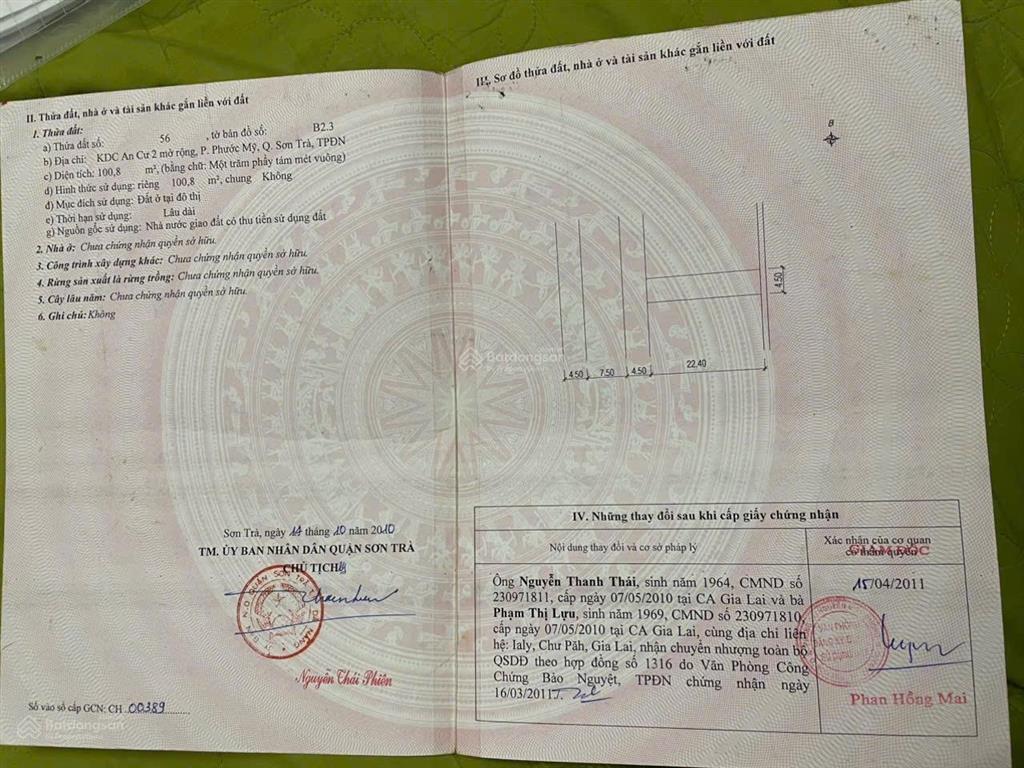 II. Thửa đất, nhà ở và tài sản khác gắn liền với đất
1. Thửa đất:
a) Thửa đất số: 56 , tờ bản đồ số: B2.3
b) Địa chỉ: KDC An Cư 2 mở rộng, P. Phước Mỹ, Q. Sơn Trà, TPĐN
c) Diện tích: 100,8 m², (bằng chữ: Một trăm phẩy tám mét vuông)
d) Hình thức sử dụng: riêng 100,8 m², chung Không
đ) Mục đích sử dụng: Đất ở tại đô thị
e) Thời hạn sử dụng: Lâu dài
g) Nguồn gốc sử dụng: Nhà nước giao đất có thu tiền sử dụng đất
2. Nhà ở: Chưa chứng nhận quyền sở hữu.
3. Công trình xây dựng khác: Chưa chứng nhận quyền sở hữu.
4. Rừng sản xuất là rừng trồng: Chưa chứng nhận quyền sở hữu.
5. Cây lâu năm: Chưa chứng nhận quyền sở hữu.
6. Ghi chú: Không
Sơn Trà, ngày 14 tháng 10 năm 2010
TM. ỦY BAN NHÂN DÂN QUẬN SƠN TRÀ
CHỦ TỊCH
Nguyễn Thái Phiên
Số vào sổ cấp GCN: CH 00389
III. Sơ đồ thửa đất, nhà ở và tài sản khác gắn liền với đất
B
4.50
4.50 7.50 4.50 22.40
Batdongsan
by PropertyGuru
IV. Những thay đổi sau khi cấp giấy chứng nhận
Nội dung thay đổi và cơ sở pháp lý
Xác nhận của cơ quan
có thẩm quyền
GIÁM ĐỐC
Ông Nguyễn Thanh Thái, sinh năm 1964, CMND số
230971811, cấp ngày 07/05/2010 tại CA Gia Lai và bà
Phạm Thị Lựu, sinh năm 1969, CMND số 230971810,
cấp ngày 07/05/2010 tại CA Gia Lai, cùng địa chỉ liên
hệ: Ialy, Chư Păh, Gia Lai, nhận chuyển nhượng toàn bộ
QSDĐ theo hợp đồng số 1316 do Văn Phòng Công
Chứng Bảo Nguyệt, TPĐN chứng nhận ngày
16/03/2011
15/04/2011
Phan Hồng Mai
Batdongsan